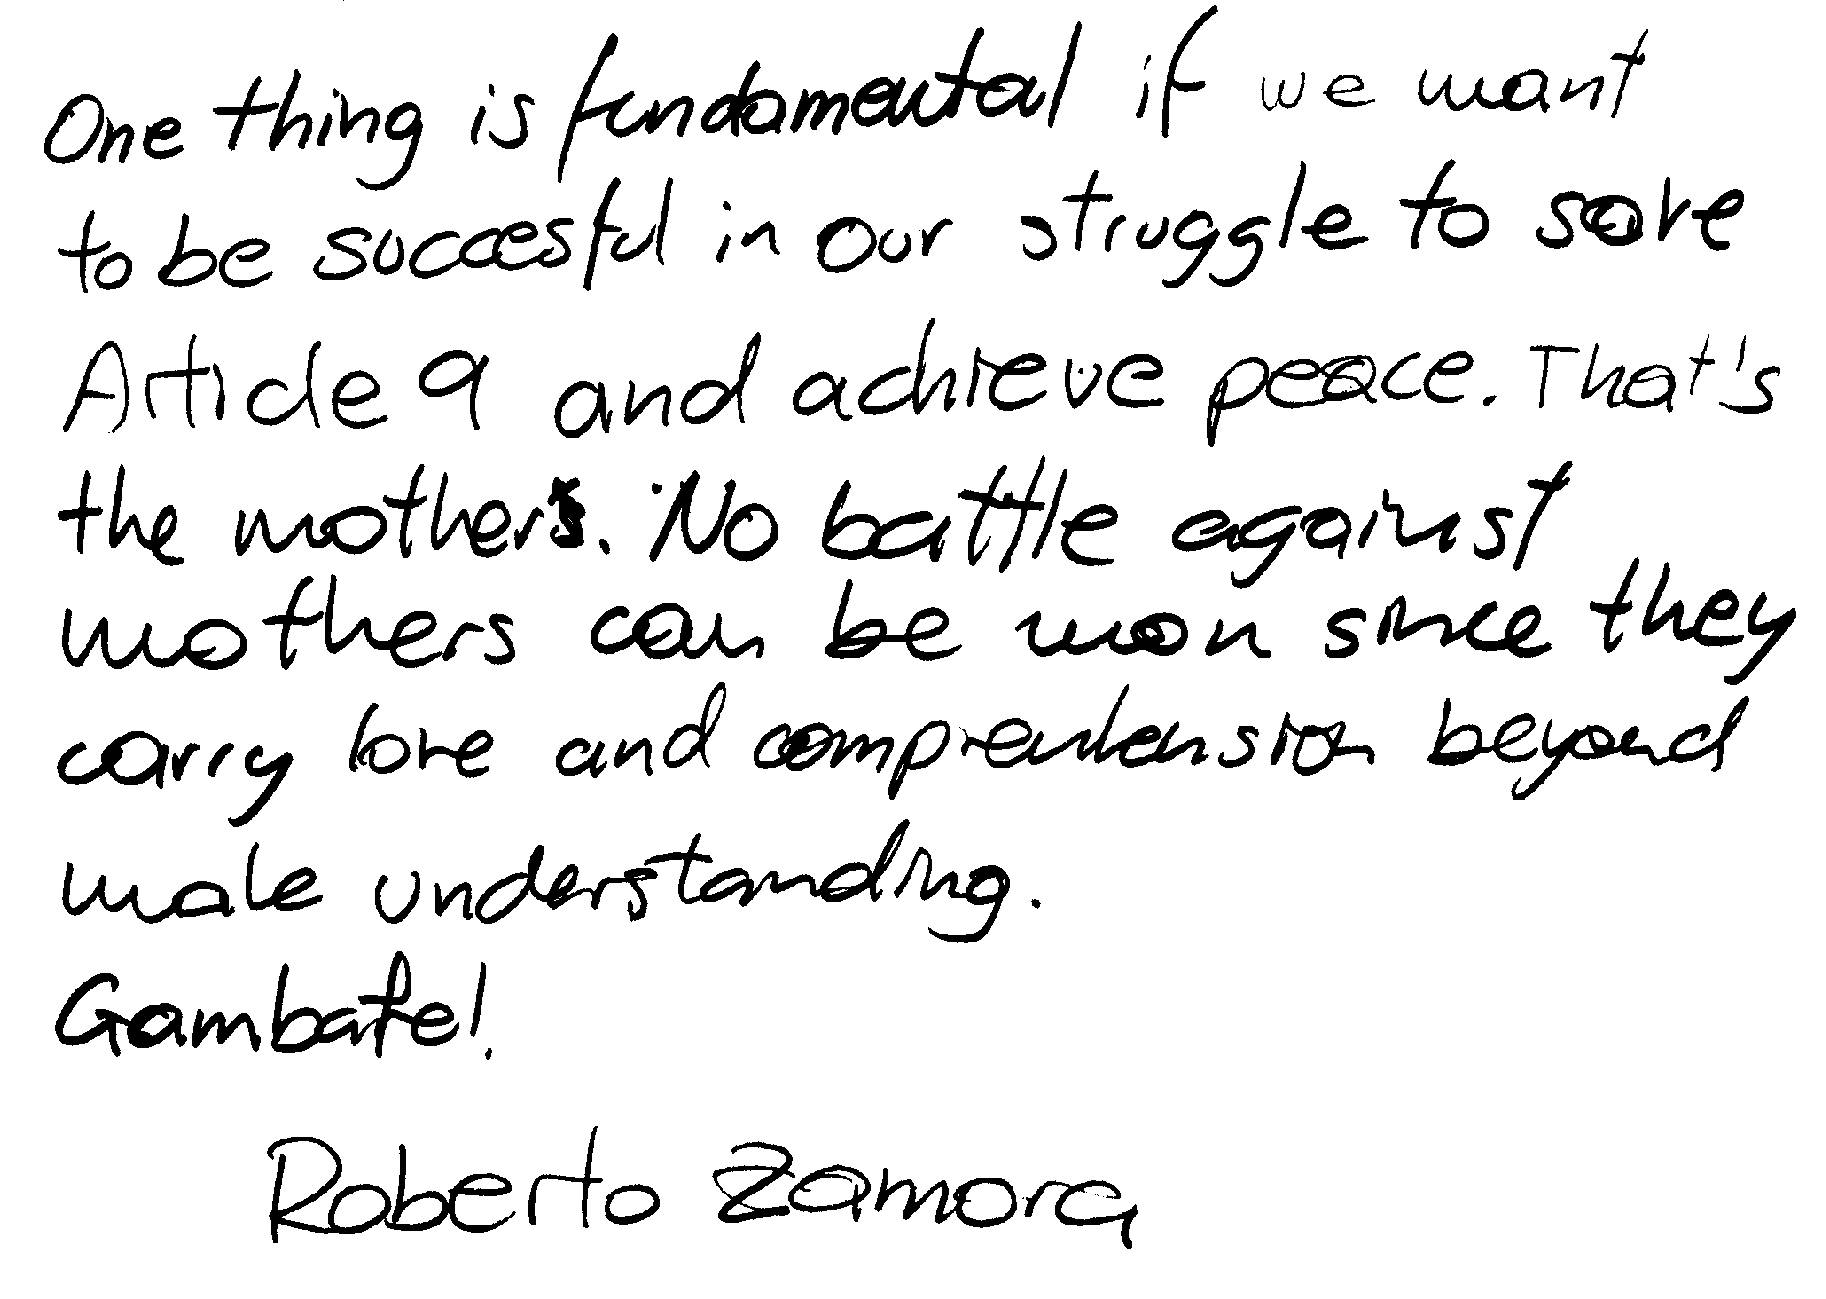 One thing is fundamental if we want
to be succesful in our struggle to save
Article 9 and achieve peace. That's
the mothers. No battle against
mothers can be won since they
carry love and comprenhension beyond
male understanding.
Gambate!
Roberto Zamora